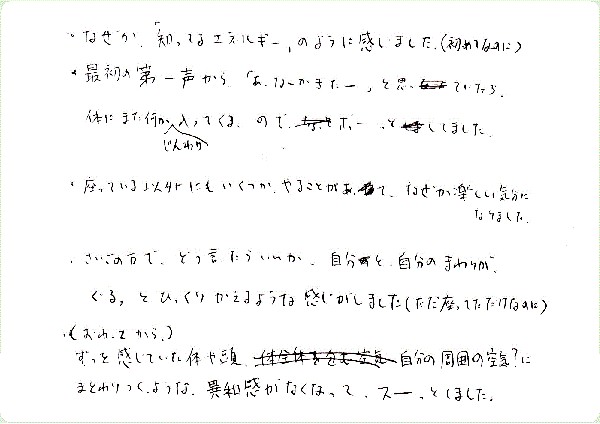 ・なぜか、「知ってるエネルギー」のように感じました。(初めてなのに)
・最初の第一声から、「あ、なーかきたー」と思っていたら、
体にまた何か入ってくるので、ボーっとしてました。
じんわり
・座っている以外にもいくつか、やることがあって、なぜか楽しい気分に
なりました。
・さいごの方で、どう言ったらいいか、自分と、自分のまわりが、
ぐるっとひっくりかえるような感じがしました(ただ座ってただけなのに)
・(おわってから。)
ずっと感じていた体や頭、自分の周囲の空気?に
まとわりつくような、異和感がなくなって、スーっとしました。